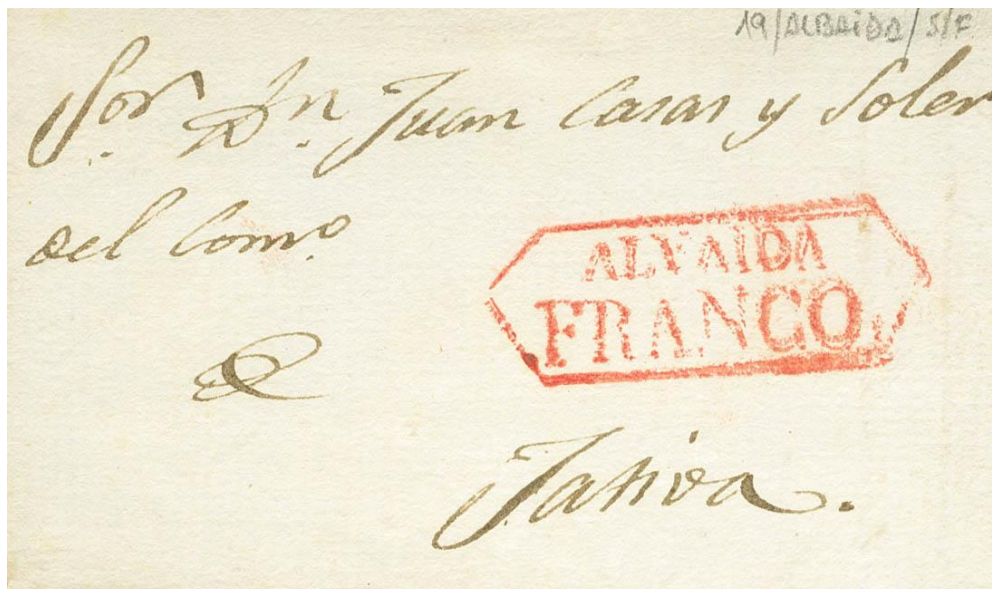 19/ALBAIDA/S/F
Sor. Dn. Juan Casas y Soler
del Como.
ALVAIDA
FRANCO
Jativa.